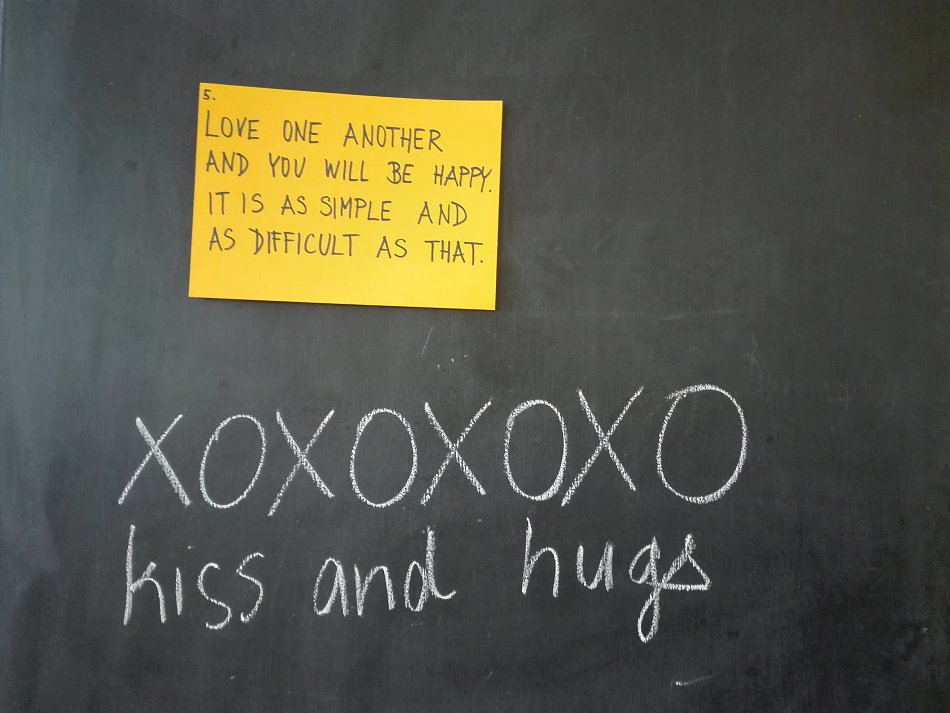 5.
LOVE ONE ANOTHER
AND YOU WILL BE HAPPY.
IT IS AS SIMPLE AND
AS DIFFICULT AS THAT.
XOXOXOXO
kiss and hugs